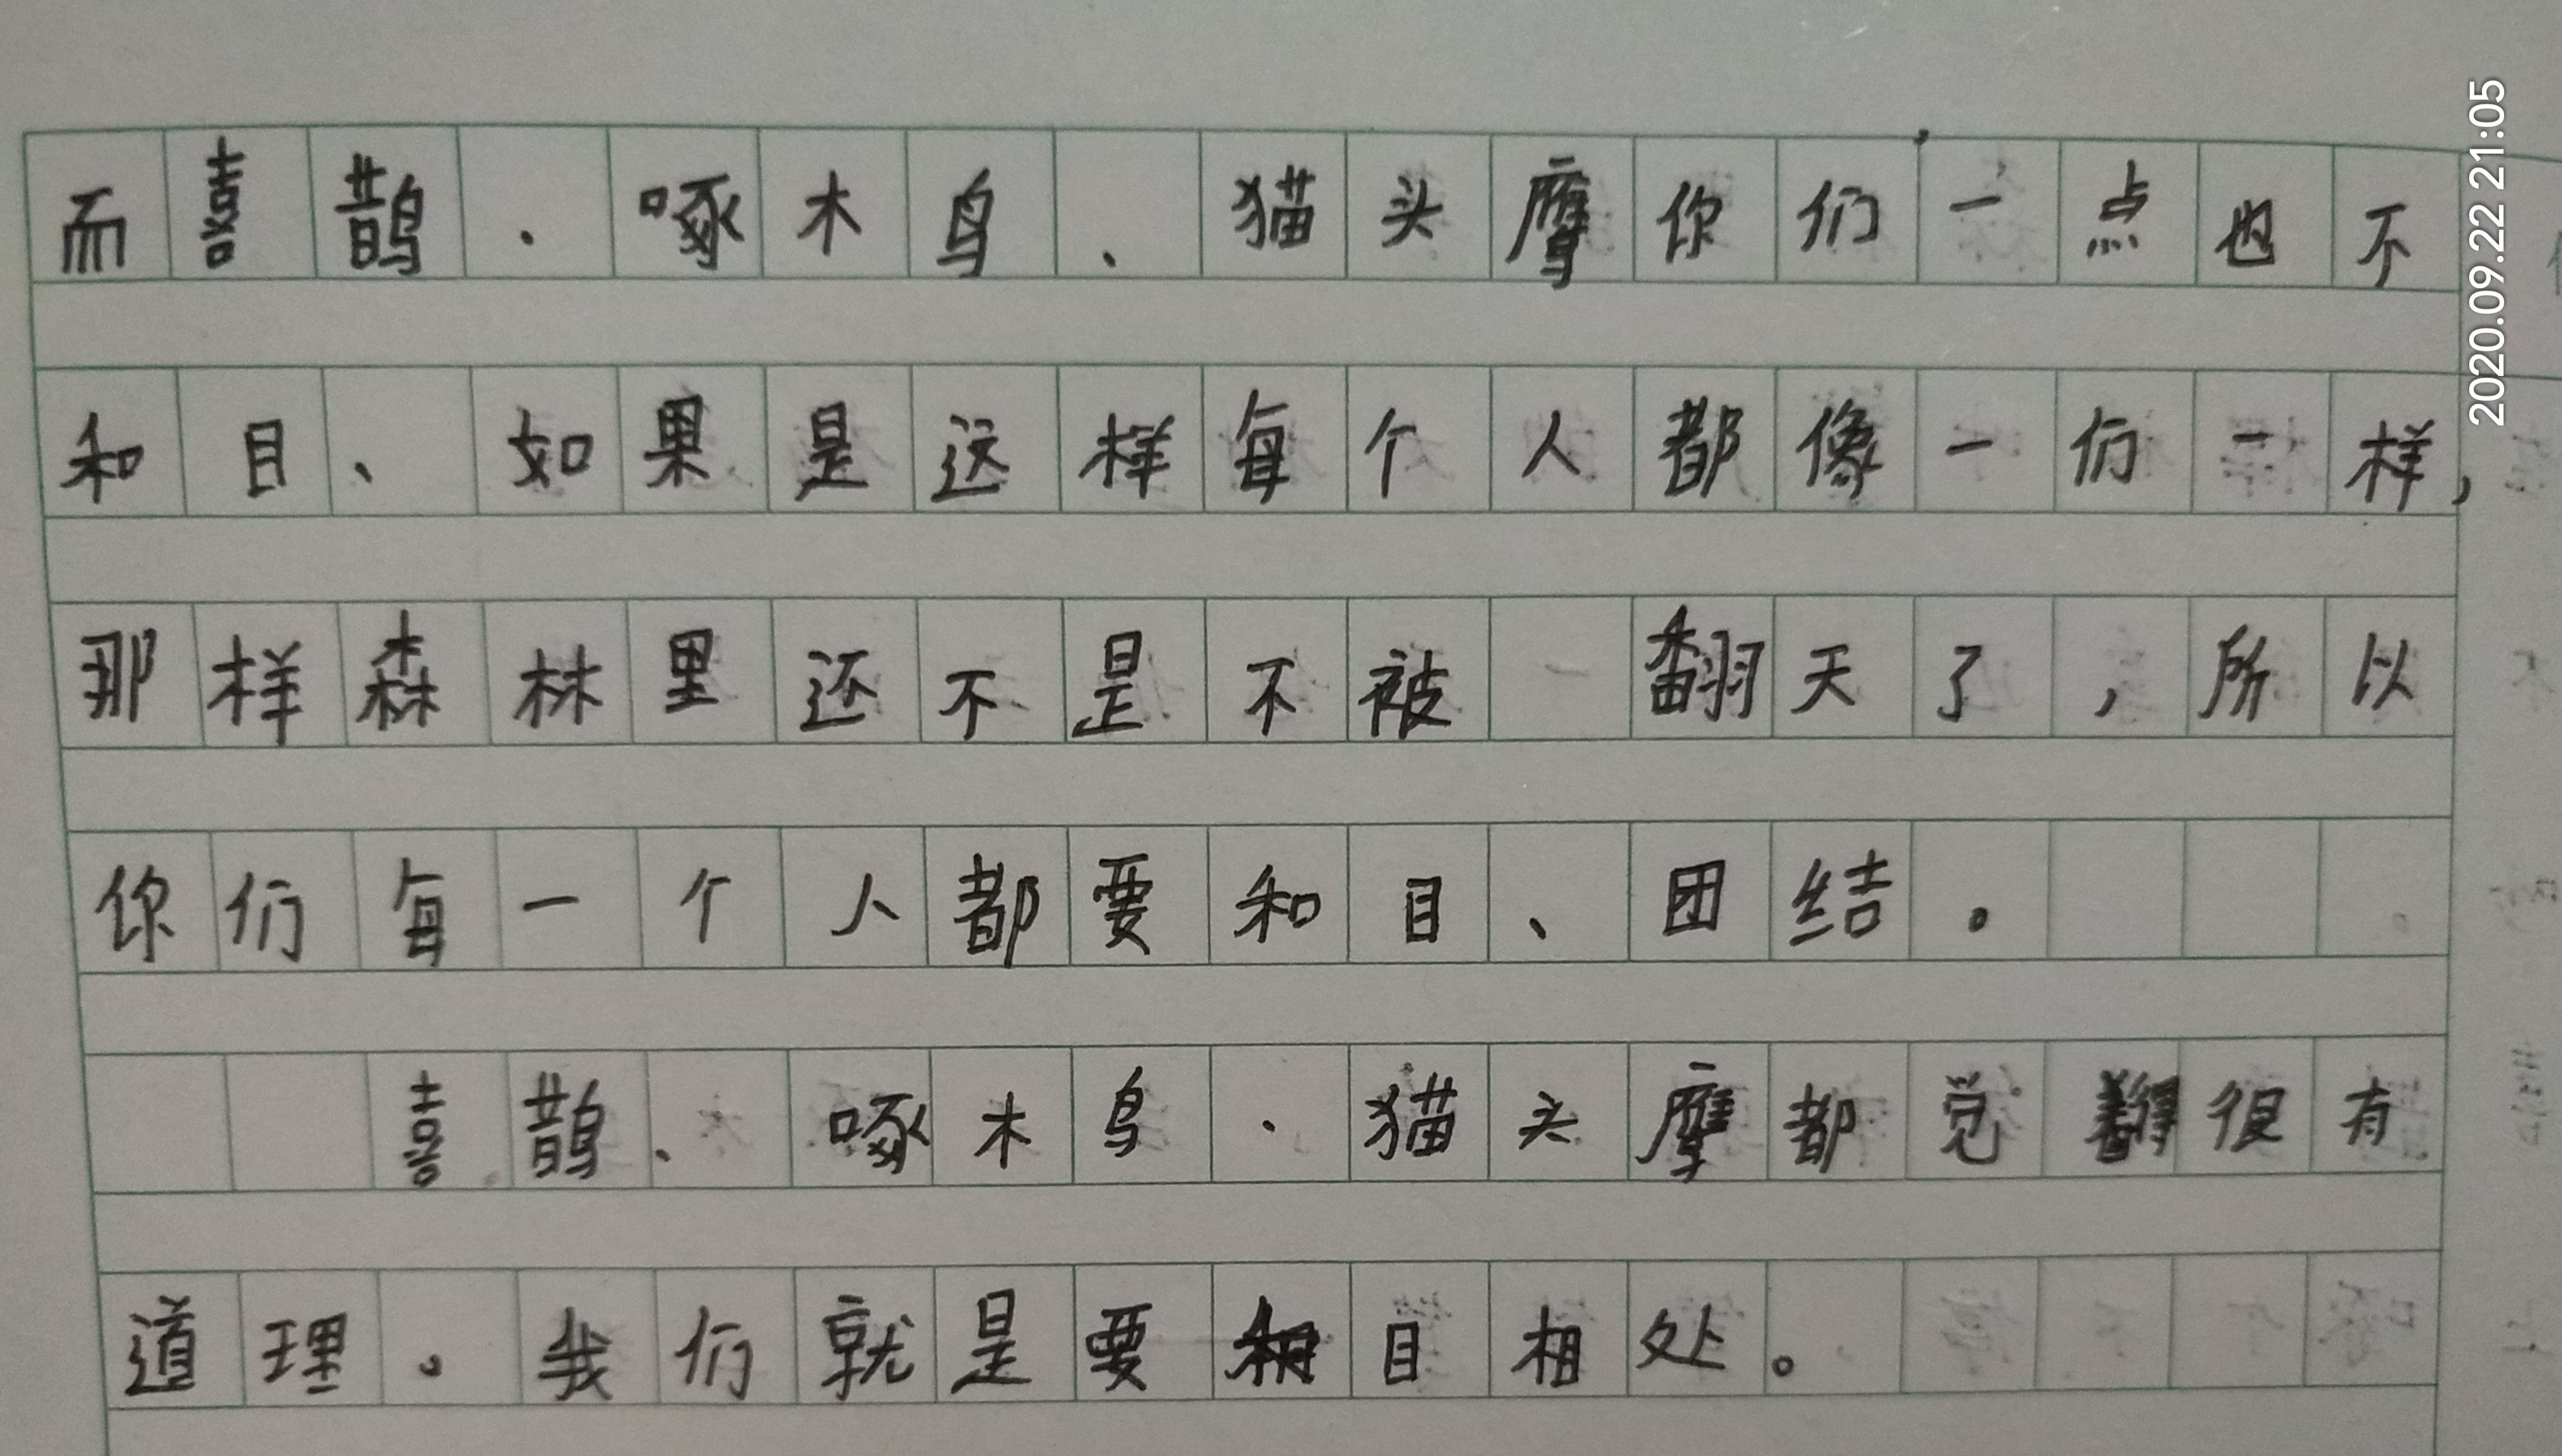 而喜鹊、啄木鸟、猫头摩你们一点也不
和目、如果是这样每个人都像一们一样,
那样森林里还不是不被翻天了,所以
你们每一个人都要和目、团结。
喜鹊、啄木鸟、猫头摩都觉得很有
道理。我们就是要和目相处。
2020.09.22 21:05